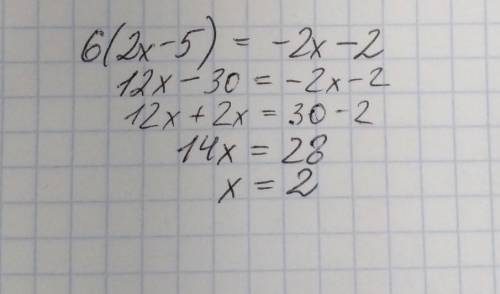 6(2x-5) = -2x-2
12x-30 = -2x-2
12x+2x = 30-2
14x = 28
x = 2